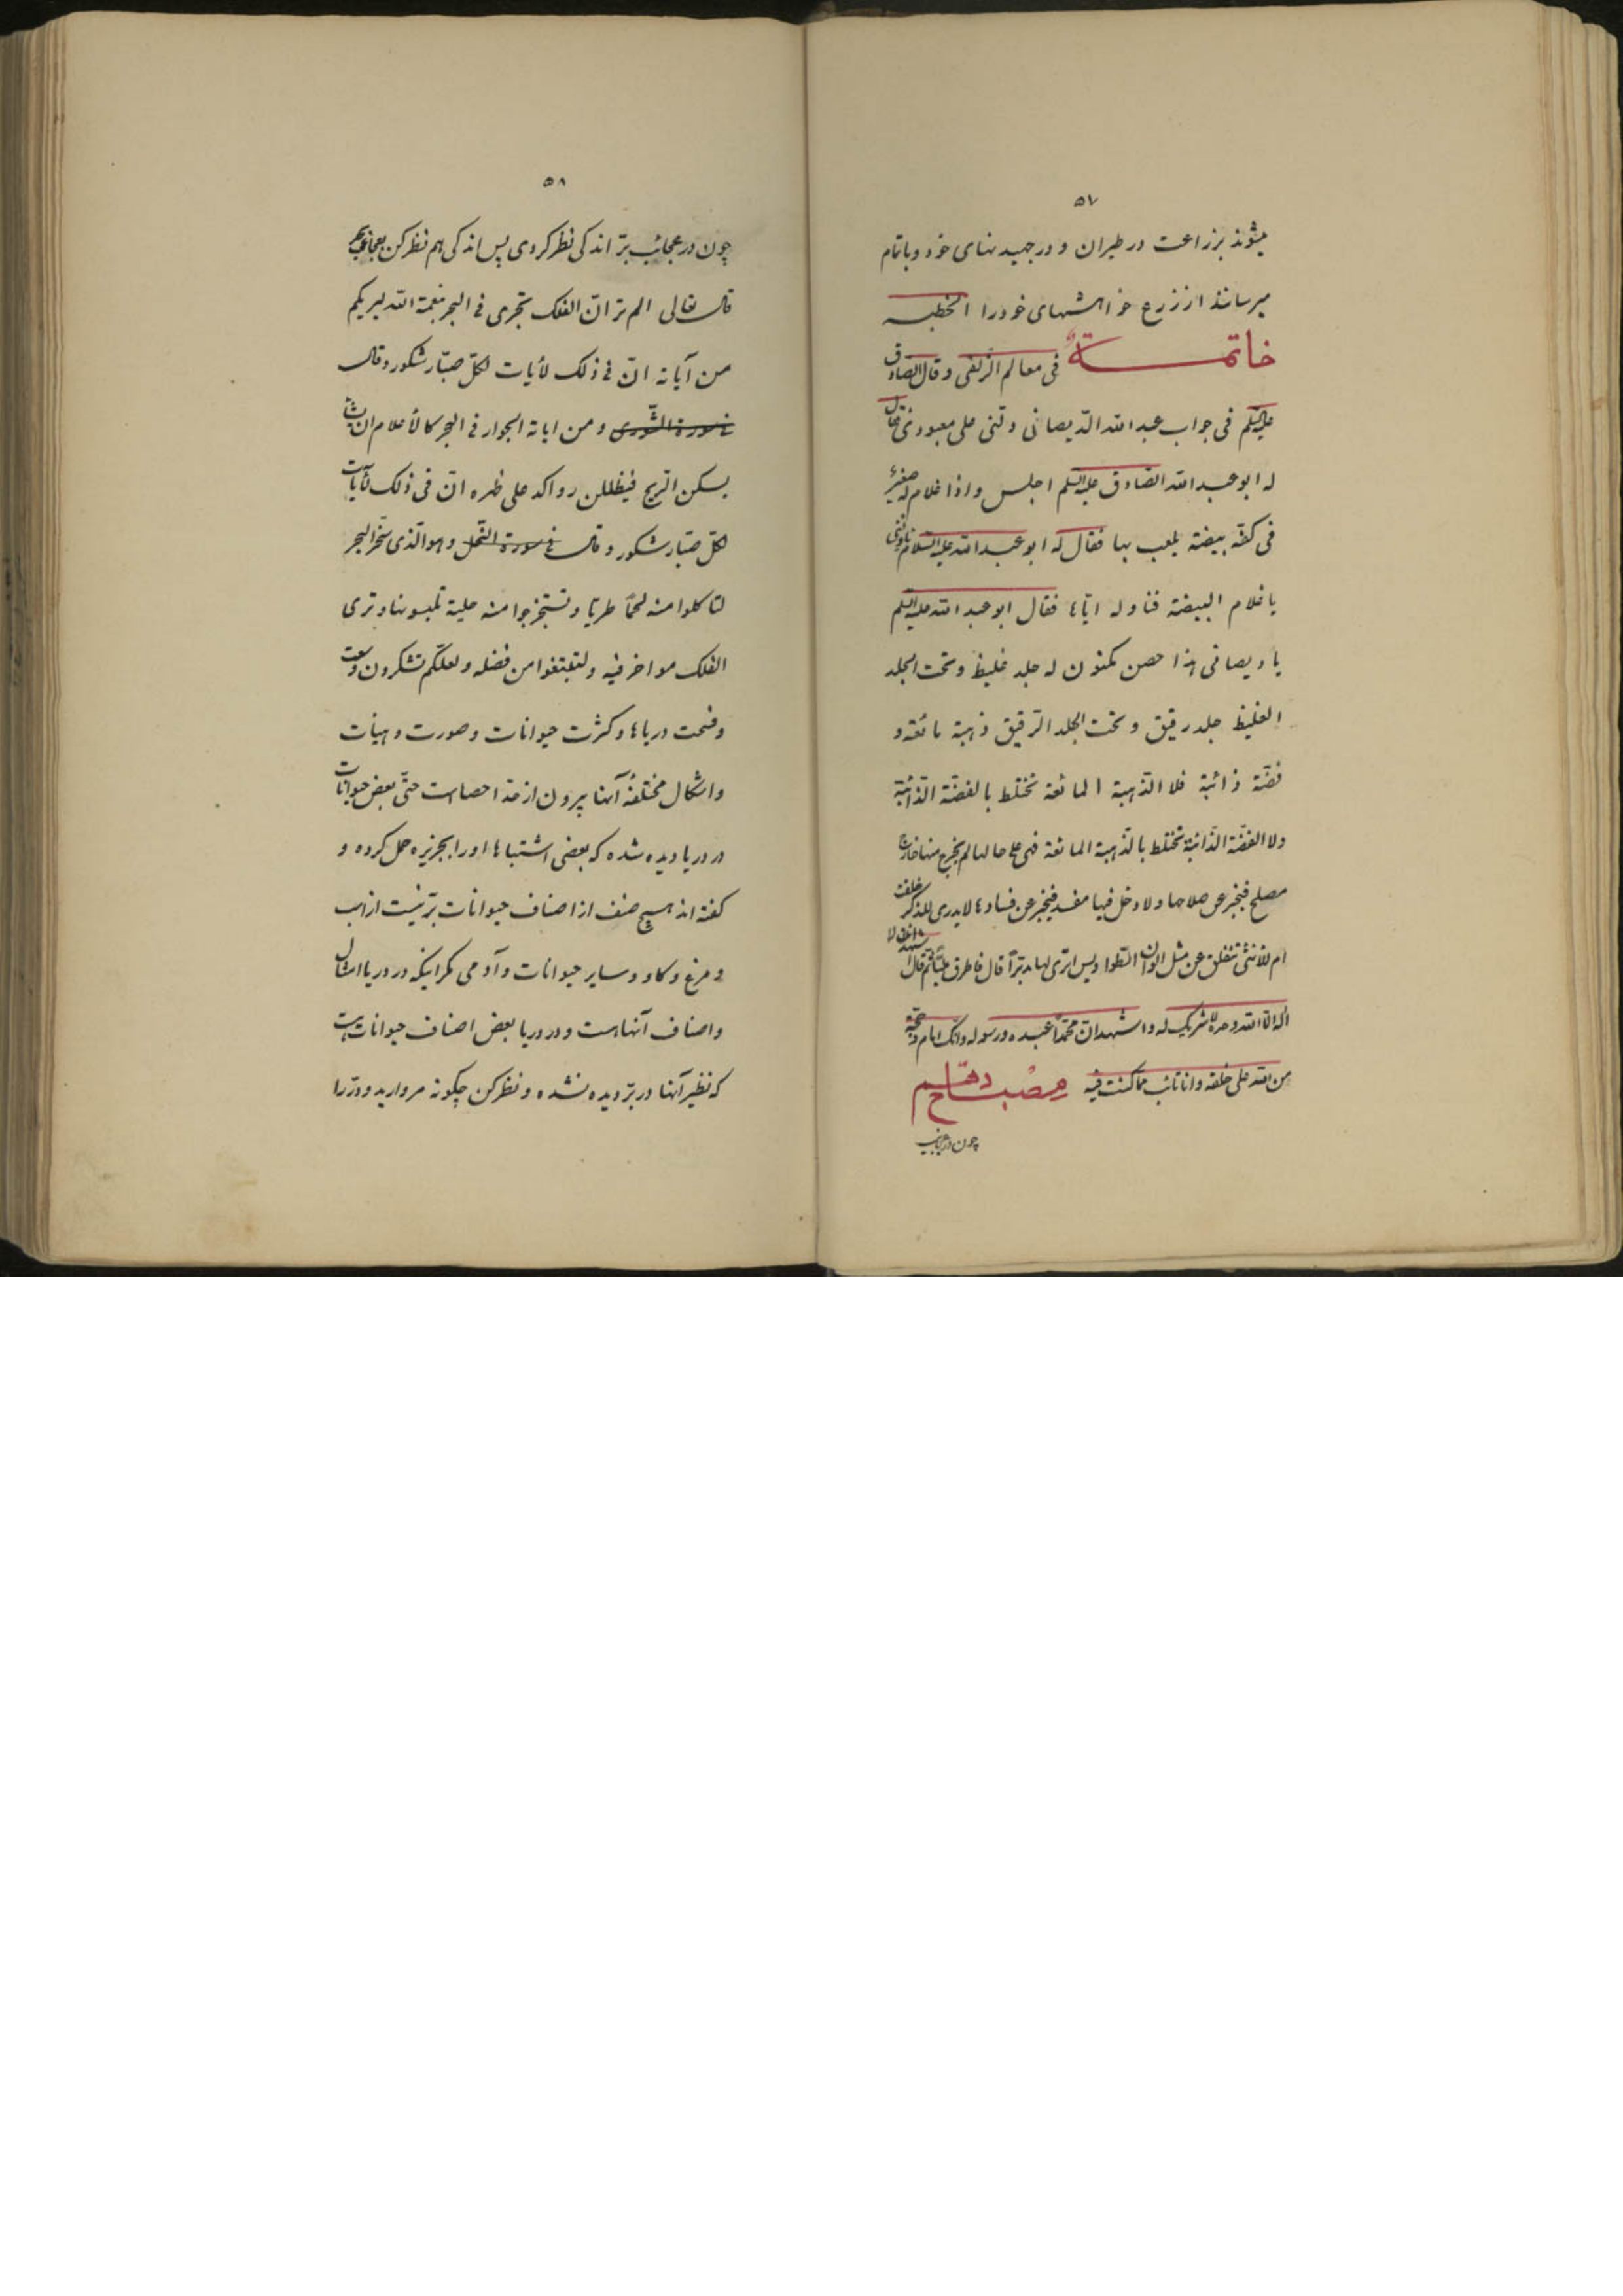 ۵۷
میشوند بزراعت در طیران و در جهیدنهای خود و باتمام
میرسانند از زرع خواهشهای خود را الخطبه
خاتمـــة فی معالم الزلفی و قال الصادق
علیه السلم فی جواب عبد الله الدیصانی دلّنی علی معبودی فقال
له ابو عبد الله الصادق علیه السلم اجلس و اذا غلام له صغیر
فی کفّه بیضة یلعب بها فقال له ابو عبد الله علیه السلام ناولنی
یا غلام البیضة فناوله ایّاها فقال ابو عبد الله علیه السلم
یا دیصانی هذا حصن مکنون له جلد غلیظ و تحت الجلد
الغلیظ جلد رقیق و تحت الجلد الرّقیق ذهبة مائعة و
فضّة ذائبة فلا الذّهبة المائعة تختلط بالفضّة الذّائبة
ولا الفضّة الذّائبة تختلط بالذّهبة المائعة فهی علی حالها لم یخرج منها خارج
مصلح فیخبر عن صلاحها ولا دخل فیها مفسد فیخبر عن فسادها لا یدری للذکر خلقت
ام للانثی تنفلق عن مثل الوان الطّواویس اتری لها مدبّراً قال فاطرق ملیّاً ثم قال اشهد ان لا
اله الّا الله وحده لا شریک له و اشهد انّ محمّداً عبده و رسوله و انّک امام و حجّة
من الله علی خلقه و انا تائب ممّا کنت فیه مصباح دهم
چون در عجایب
۵۸
چون در عجائب برّ اندکی نظر کردی پس اندکی هم نظر کن بعجائب بحر
قال تعالی الم تر انّ الفلک تجری فی البحر بنعمة الله لیریکم
من آیاته انّ فی ذلک لأیات لکلّ صبّار شکور و قال
فی سورة الشّوری و من ایاته الجوار فی البحر کالأعلام ان یشأ
یسکن الرّیح فیظللن رواکد علی ظهره انّ فی ذلک لآیات
لکلّ صبّار شکور و قال فی سورة النّحل و هو الّذی سخّر البحر
لتاکلوا منه لحمًا طریّا و تستخرجوا منه حلیة تلبسونها و تری
الفلک مواخر فیه و لتبتغوا من فضله و لعلّکم تشکرون وسعت
و فسحت دریاها و کثرت حیوانات و صورت و هیأت
و اشکال مختلفهٔ آنها بیرون از حدّ احصاست حتّی بعض حیوانات
در دریا دیده شده که بعضی اشتباها او را بجزیره حمل کرده و
گفته‌اند هیچ صنف از اصناف حیوانات برّ نیست از اسب
و مرغ و گاو و سایر حیوانات و آدمی مگر اینکه در دریا امثال
و اصناف آنهاست و در دریا بعض اصناف حیوانات هست
که نظیر آنها در برّ دیده نشده و نظر کن چگونه مروارید و درّ را